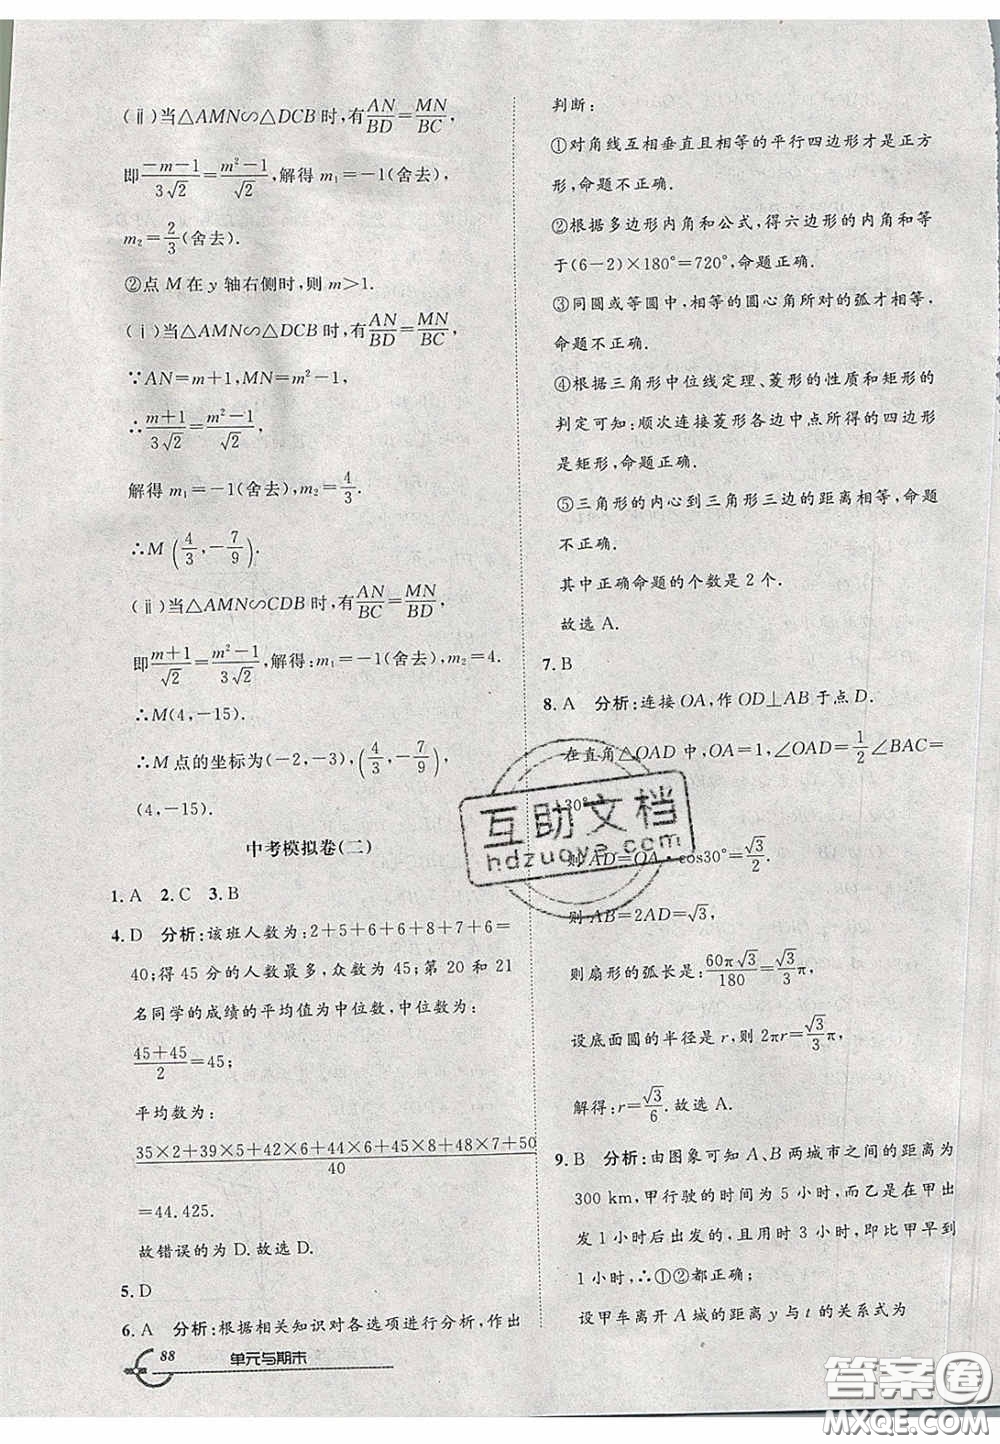 (ⅱ)当△AMN∽△DCB时,有AN/BD=MN/BC,
即(-m-1)/(3√2)=(m²-1)/√2,解得m₁=-1(舍去),
m₂=2/3(舍去).
②点M在y轴右侧时,则m>1.
(ⅰ)当△AMN∽△DCB时,有AN/BD=MN/BC,
∵AN=m+1,MN=m²-1,
∴(m+1)/(3√2)=(m²-1)/√2,
解得m₁=-1(舍去),m₂=4/3.
∴M(4/3,-7/9).
(ⅱ)当△AMN∽CDB时,有AN/BC=MN/BD,
即(m+1)/√2=(m²-1)/(3√2),解得:m₁=-1(舍去),m₂=4.
∴M(4,-15).
∴M点的坐标为(-2,-3),(4/3,-7/9),
(4,-15).
中考模拟卷(二)
1. A 2. C 3. B
4. D 分析:该班人数为:2+5+6+6+8+7+6=
40;得45分的人数最多,众数为45;第20和21
名同学的成绩的平均值为中位数,中位数为:
(45+45)/2=45;
平均数为:
(35×2+39×5+42×6+44×6+45×8+48×7+50)/40
=44.425.
故错误的为D.故选D.
5. D
6. A 分析:根据相关知识对各选项进行分析,作出
88 单元与期末
判断:
①对角线互相垂直且相等的平行四边形才是正方
形,命题不正确.
②根据多边形内角和公式,得六边形的内角和等
于(6-2)×180°=720°,命题正确.
③同圆或等圆中,相等的圆心角所对的弧才相等,
命题不正确.
④根据三角形中位线定理、菱形的性质和矩形的
判定可知:顺次连接菱形各边中点所得的四边形
是矩形,命题正确.
⑤三角形的内心到三角形三边的距离相等,命题
不正确.
其中正确命题的个数是2个.
故选A.
7. B
8. A 分析:连接OA,作OD⊥AB于点D.
在直角△OAD中,OA=1,∠OAD=1/2∠BAC=
30°
则AD=OA·cos30°=√3/2.
则AB=2AD=√3,
则扇形的弧长是:60π√3/180=√3/3π,
设底面圆的半径是r,则2πr=√3/3π,
解得:r=√3/6.故选A.
9. B 分析:由图象可知A、B两城市之间的距离为
300 km,甲行驶的时间为5小时,而乙是在甲出
发1小时后出发的,且用时3小时,即比甲早到
1小时,∴①②都正确;
设甲车离开A城的距离y与t的关系式为
互助文档
hdzuoye.com
答案圈
MXQE.COM